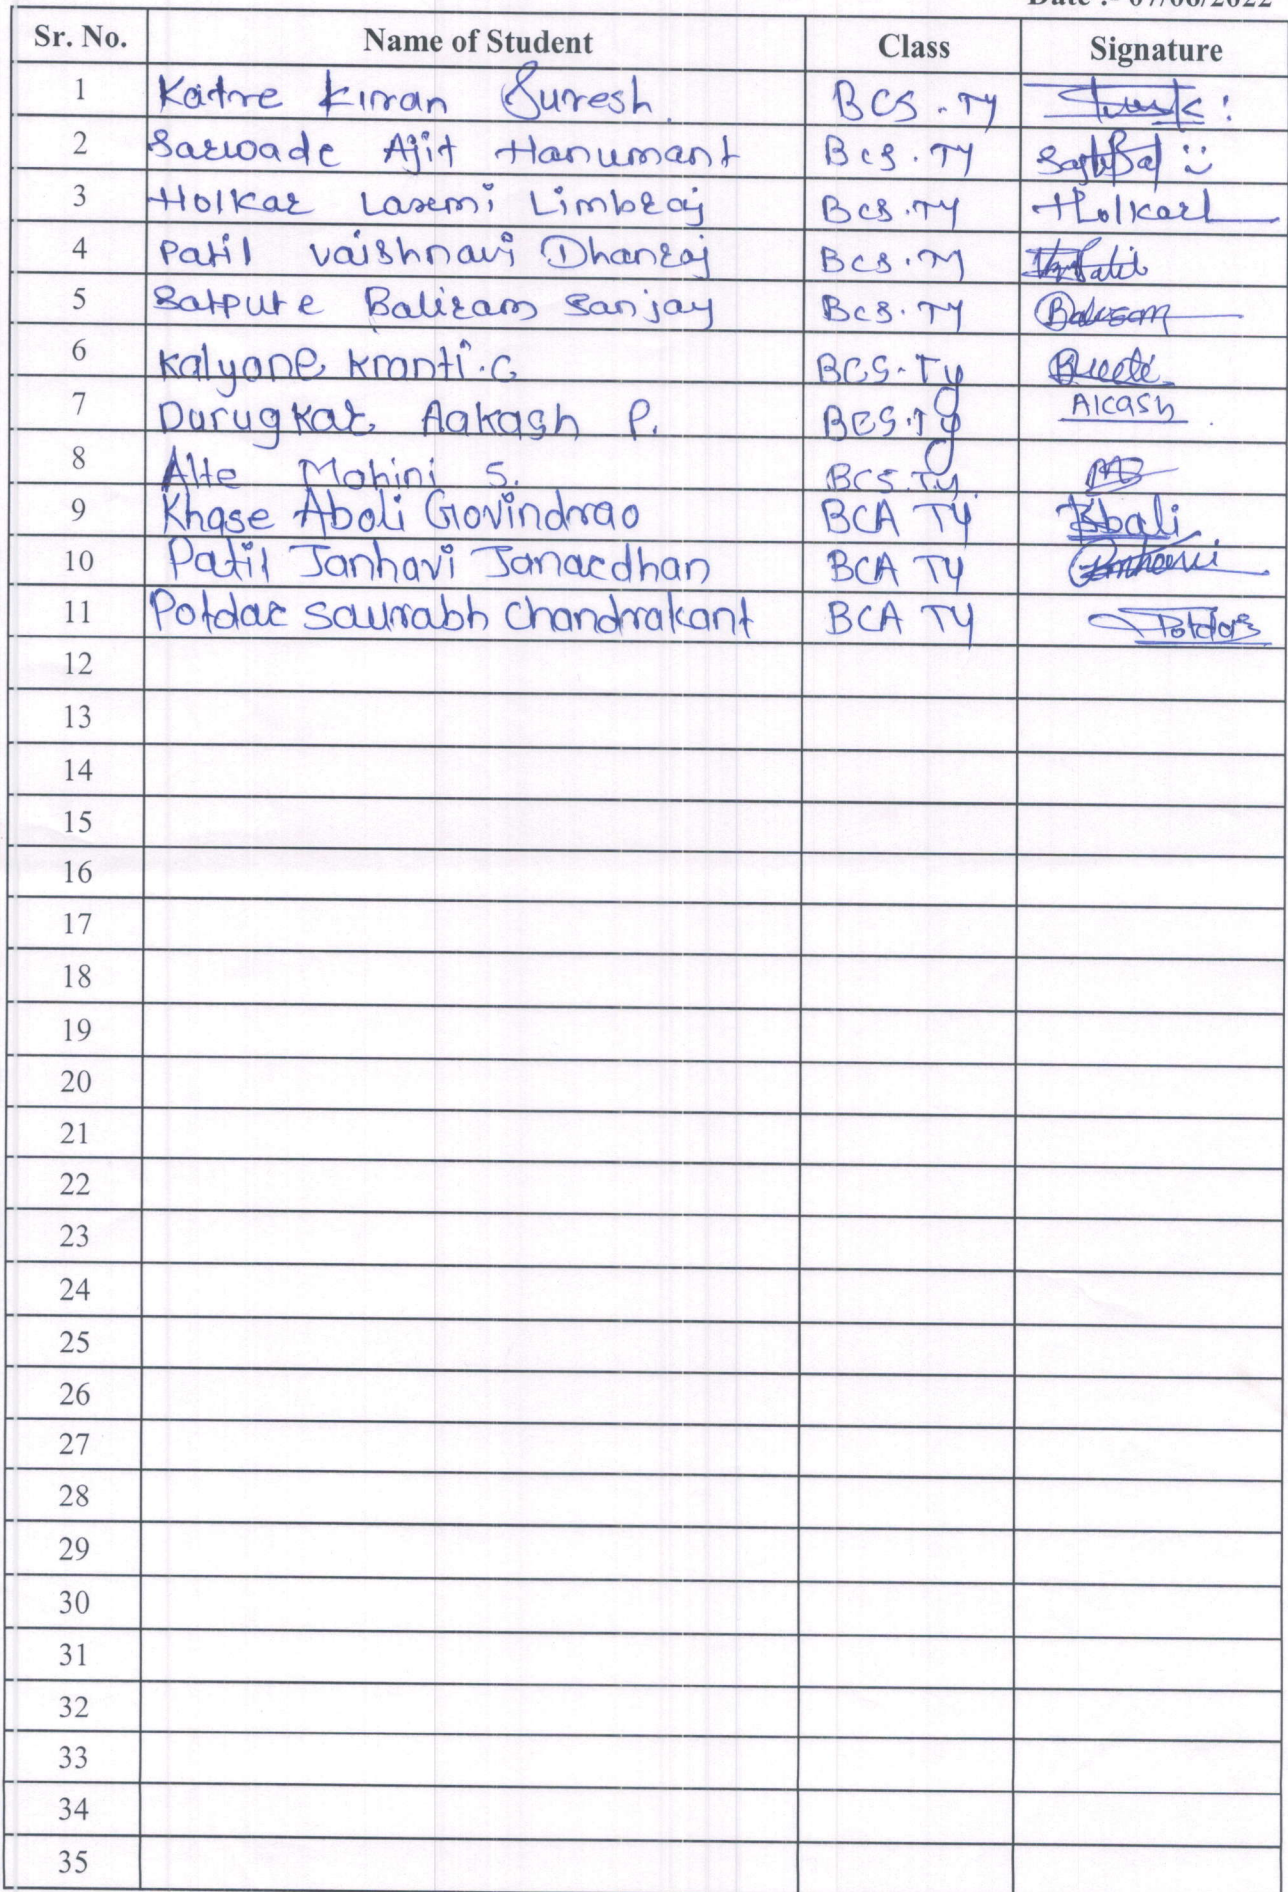 Date :- 07/06/2022
Sr. No. Name of Student Class Signature
1 Katre Kiran Suresh BCS - TY
2 Sarwade Ajit Hanumant BCS . TY
3 Holkar Laxmi Limbraj BCS . TY Holkarl
4 Patil Vaishnavi Dhanraj BCS . TY
5 Satpute Baliram Sanjay BCS . TY
6 Kalyane Kranti . C BCS - Ty
7 Durugkar Aakash P. BCS . Ty Akash
8 Alte Mohini S. BCS . Ty
9 Khase Aboli Govindrao BCA TY
10 Patil Janhavi Janardhan BCA TY
11 Potdar Saurabh Chandrakant BCA TY Potdar
12
13
14
15
16
17
18
19
20
21
22
23
24
25
26
27
28
29
30
31
32
33
34
35